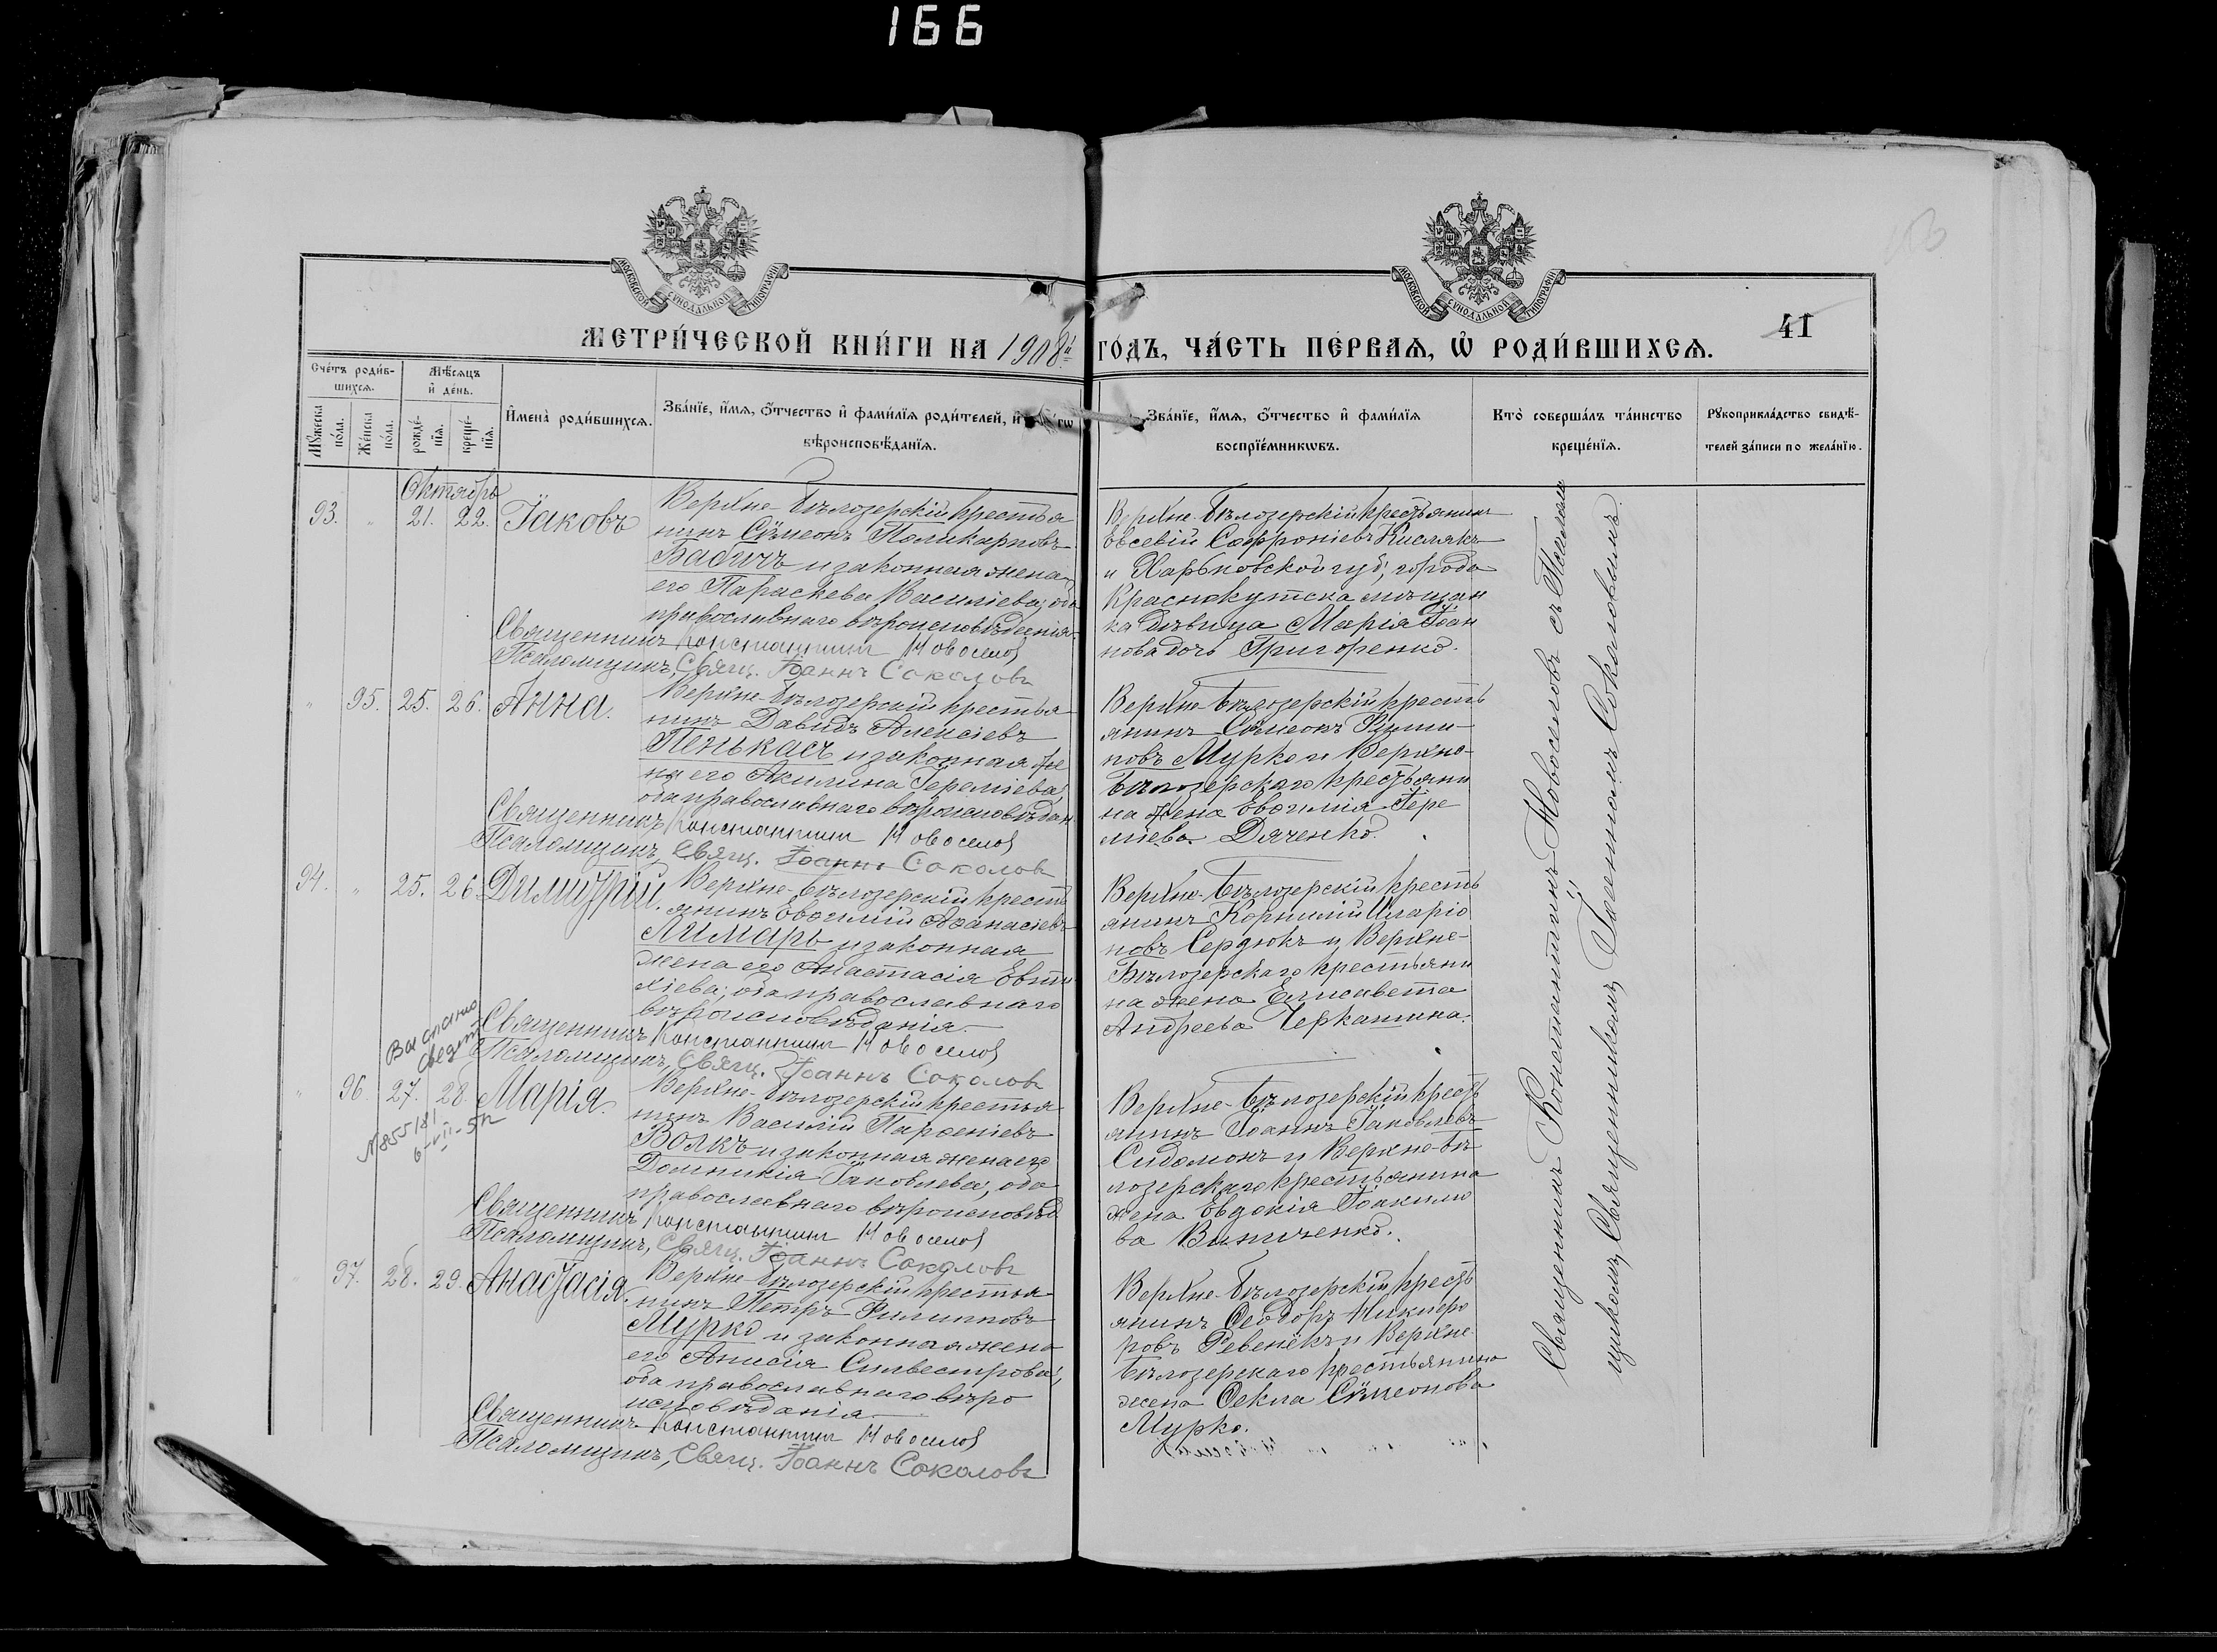 166
МОСКОВСКОЙ СѴНОДАЛЬНОЙ ТИПОГРАФІИ
МОСКОВСКОЙ СѴНОДАЛЬНОЙ ТИПОГРАФІИ
41
МЕТРИ́ЧЕСКОЙ КНИ́ГИ НА 1908й ГО́ДЪ, ЧА́СТЬ ПЕ́РВАѦ, Ѡ҆ РОДИ́ВШИХСѦ.
Сче́тъ роди́в-
шихсѧ.
Мꙋ́жеска по́ла.
Же́нска по́ла.
Мѣ́сѧцъ
и҆ де́нь.
рожде́-
нїѧ.
креще́-
нїѧ.
И҆мена̀ роди́вшихсѧ.
Зва́нїе, и҆́мѧ, ѻ҆́тчество и҆ фами́лїѧ роди́телей, и҆
вѣроисповѣ́данїѧ.
Зва́нїе, и҆́мѧ, ѻ҆́тчество и҆ фами́лїѧ
воспрїе́мникѡвъ.
Кто̀ соверша́лъ та́инство
креще́нїѧ.
Рꙋкоприкла́дство свидѣ́-
телей за́писи по жела́нїю.
Октябрь
93. " 21. 22. Іаковъ
Верхне-Бѣлозерскій крестья
нинъ Сѵмеонъ Поликарповъ
Бабичъ и законная жена
его Параскева Василіева; оба
православнаго вѣроисповѣданія.
Священникъ Константинъ Новоселов
Псаломщикъ, Свящ. Іоаннъ Соколовъ
Верхне-Бѣлозерскій крестьянинъ
Евсевій Софроніевъ Кислякъ
и Харьковской губ., города
Краснокутска мѣщан
ка дѣвица Марія Іоан
нова дочь Григоренко.
" 95. 25. 26. Анна.
Верхне-Бѣлозерскій крестья
нинъ Давидъ Алексіевъ
Пенькасъ и законная же
на его Акилина Іереміева,
оба православнаго вѣроисповѣдан.
Священникъ Константинъ Новоселов
Псаломщикъ, Свящ. Іоаннъ Соколовъ
Верхне-Бѣлозерскій кресть
янинъ Сѵмеонъ Филип-
повъ Мурко и Верхне-
Бѣлозерскаго крестьяни
на жена Евѳимія Іере
міева Дяченко.
94. " 25. 26. Димитрій.
Верхне-Бѣлозерскій кресть
янинъ Евѳимій Аѳанасіевъ
Лимарь и законная
жена его Анастасія Евти
хіева; оба православнаго
вѣроисповѣданія.
Священникъ Константинъ Новоселов
Псаломщикъ, Свящ. Іоаннъ Соколовъ
Верхне-Бѣлозерскій кресть
янинъ Корнилій Иларіо
новъ Сердюкъ и Верхне-
Бѣлозерскаго крестьяни
на жена Елисавета
Андреева Черкашина.
Выслано
свидет
" 96. 27. 28. Марія.
N 855/81
6-VII-57г
Верхне-Бѣлозерскій крестья
нинъ Василій Парѳеніевъ
Волкъ и законная жена его
Домникія Іаковлева; оба
православнаго вѣроисповѣд.
Священникъ Константинъ Новоселов
Псаломщикъ, Свящ. Іоаннъ Соколовъ
Верхне-Бѣлозерскій кресть
янинъ Іоаннъ Іаковлевъ
Сидомонъ и Верхне-Бѣ
лозерскаго крестьянина
жена Евдокія Іоакимо
ва Виниченко.
97. 28. 29. Анастасія.
Верхне-Бѣлозерскій крестья
нинъ Петръ Филипповъ
Мурко и законная жена
его Анисія Сильвестрова,
оба православнаго вѣро
исповѣданія.
Священникъ Константинъ Новоселов
Псаломщикъ, Свящ. Іоаннъ Соколовъ
Верхне-Бѣлозерскій кресть
янинъ Ѳеодоръ Никифо
ровъ Ревенекъ и Верхне-
Бѣлозерскаго крестьянина
жена Ѳекла Сѵмеонова
Мурко.
Священникъ Константинъ Новоселовъ съ Псалом
щикомъ, Священникомъ Іоанномъ Соколовымъ.